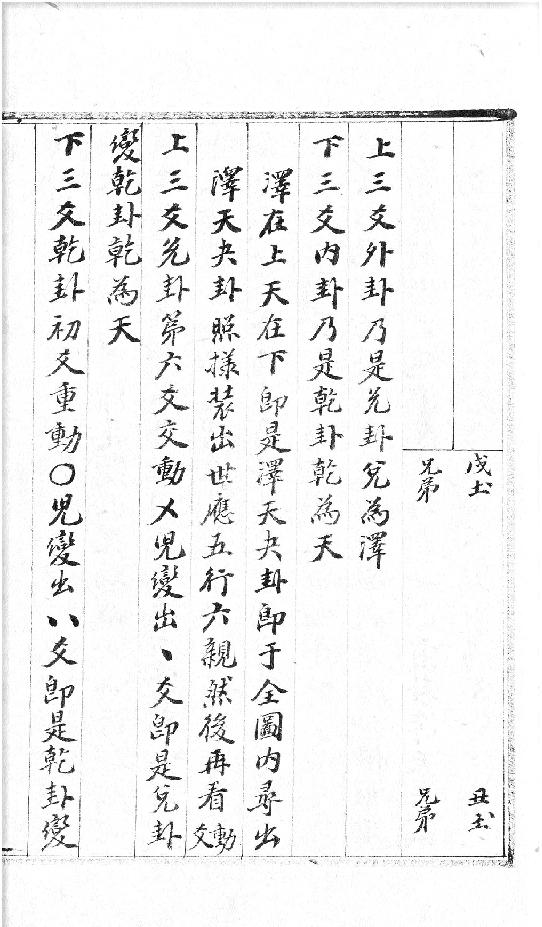 戊土 丑土
兄弟 兄弟
上三爻外卦乃是兑卦兌為澤
下三爻内卦乃是乾卦乾為天
澤在上天在下即是澤天夬卦即于全圖内尋出
澤天夬卦照樣裝出世應五行六親然後再看動爻
上三爻兑卦第六爻交動㐅児變出丶爻即是兌卦
變乾卦乾為天
下三爻乾卦初爻重動〇児變出丶丶爻即是乾卦變